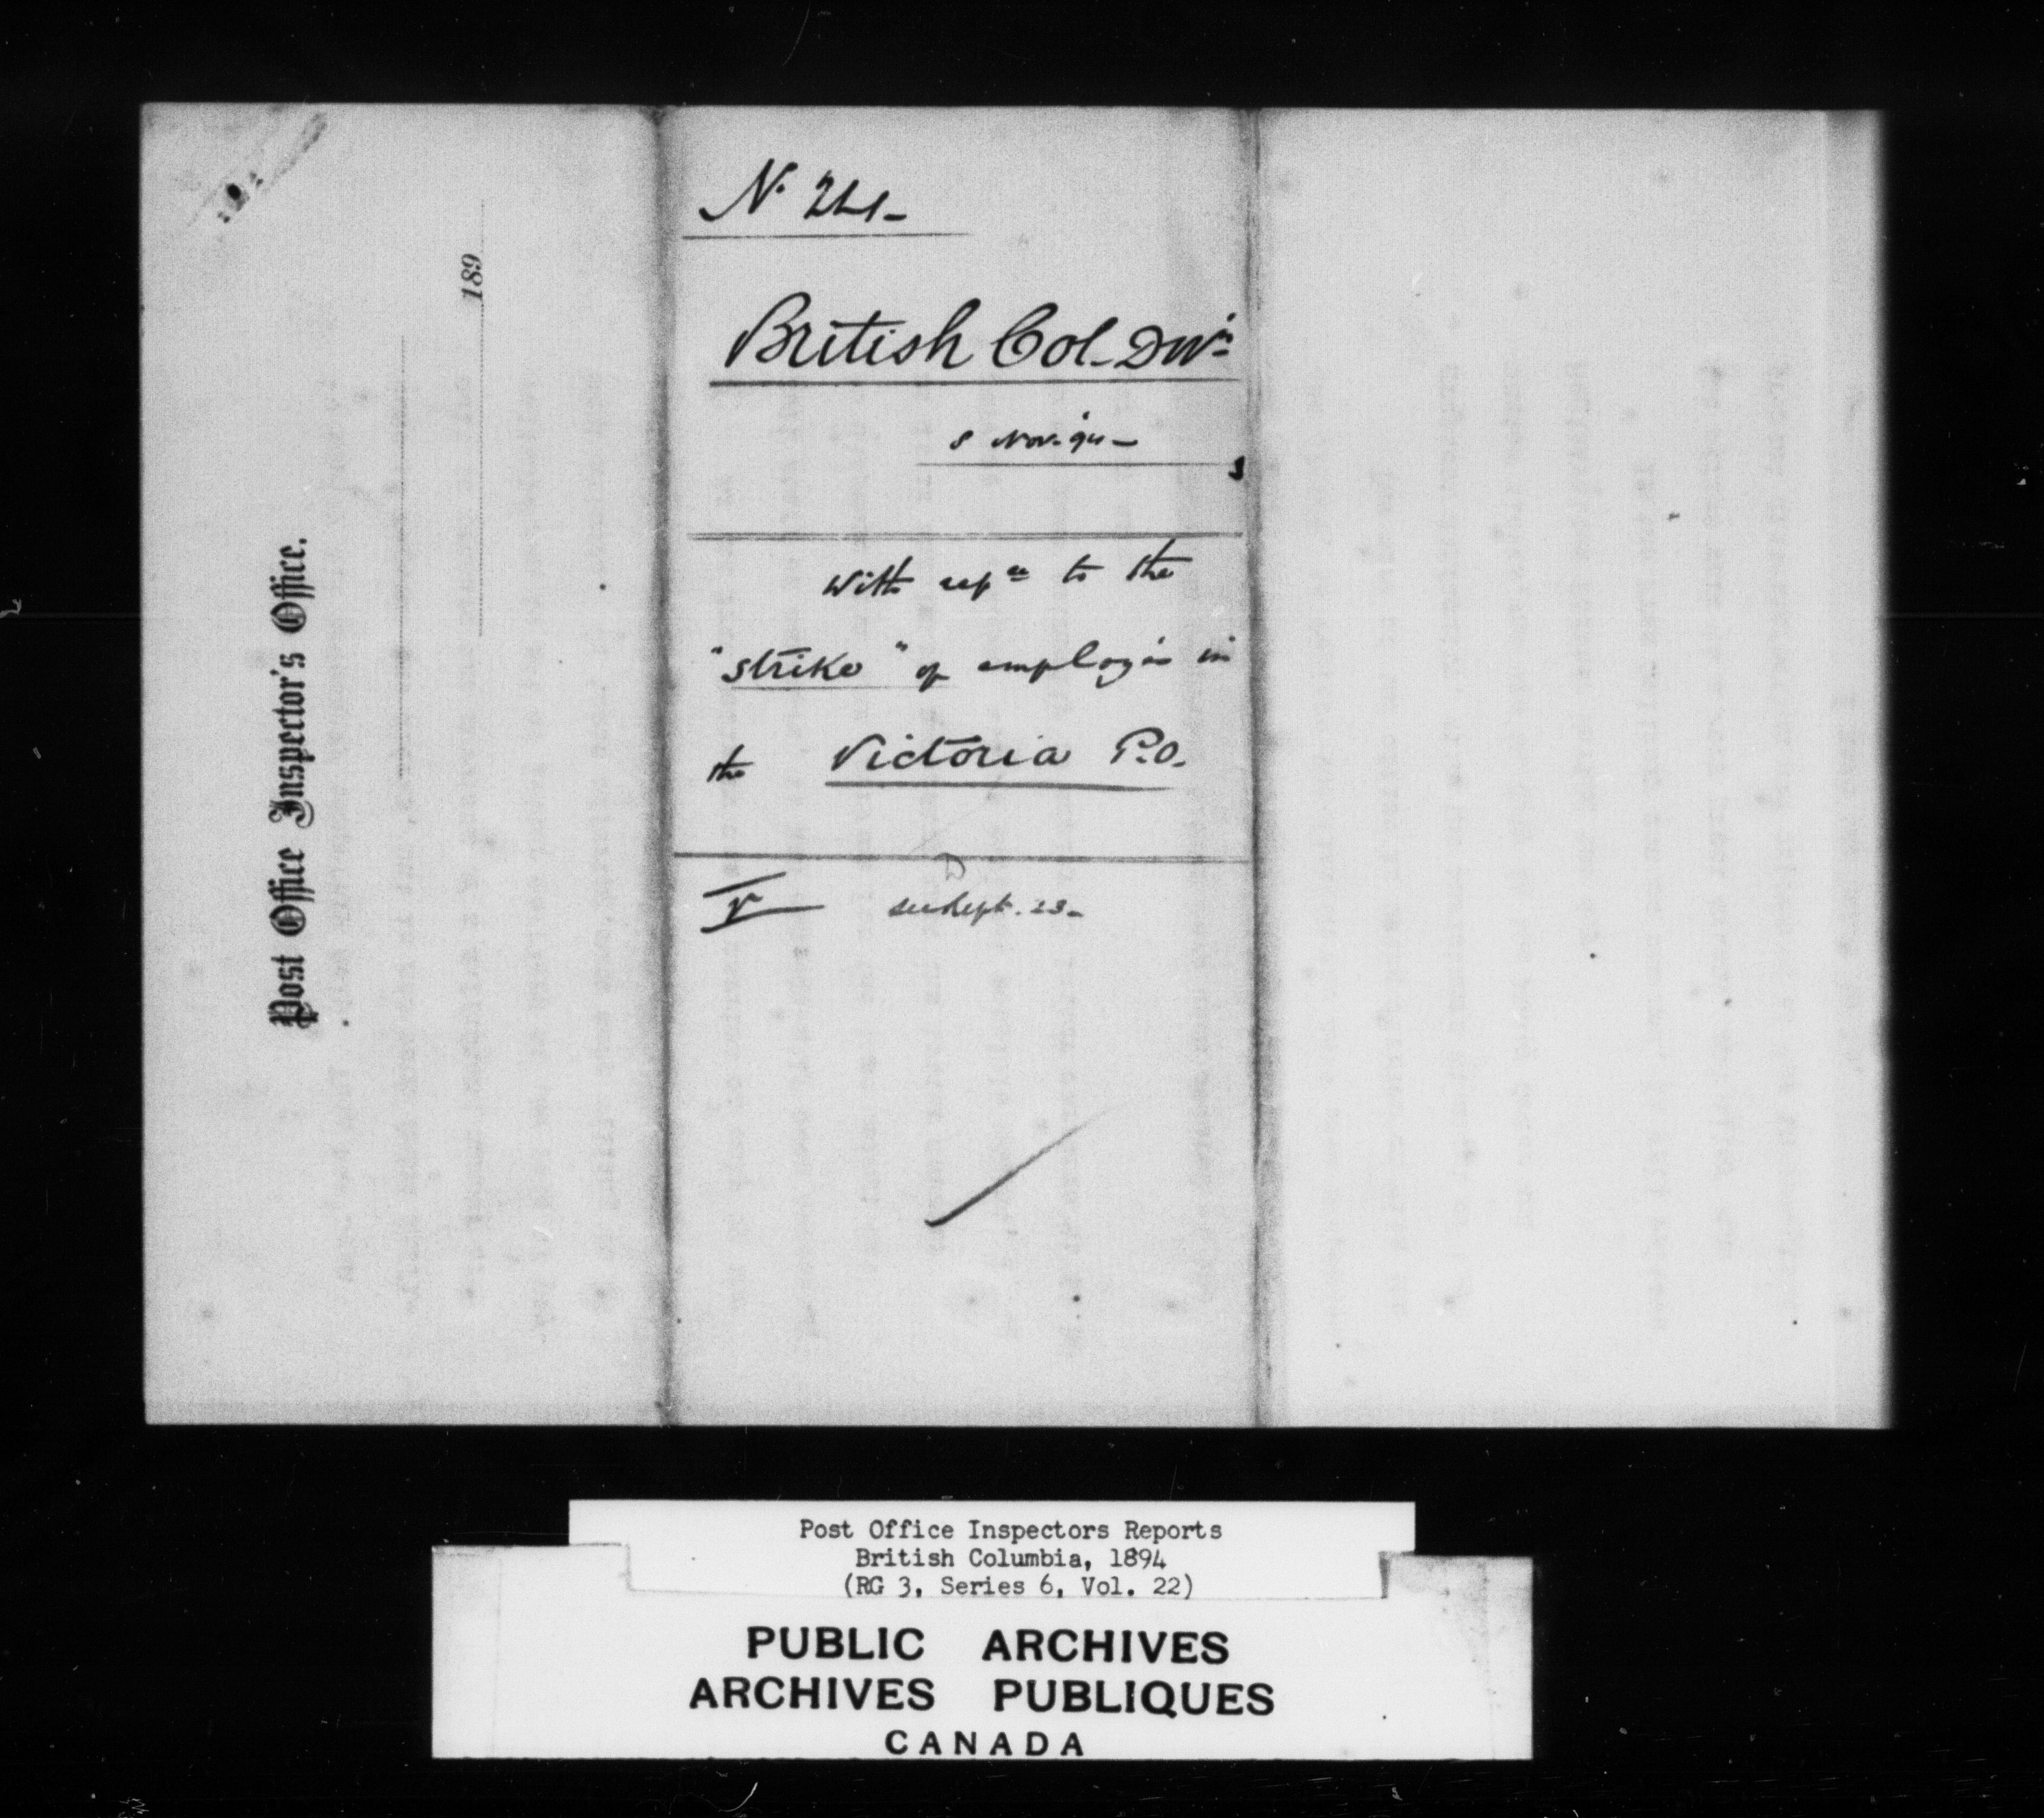 Post Office Inspector's Office.
189
British Col. Divn
8 Nov. 94
With refce to the
"strike" of employés in
the Victoria P.O.
Post Office Inspectors Reports
British Columbia, 1894
(RG 3, Series 6, Vol. 22)
PUBLIC ARCHIVES
ARCHIVES PUBLIQUES
CANADA